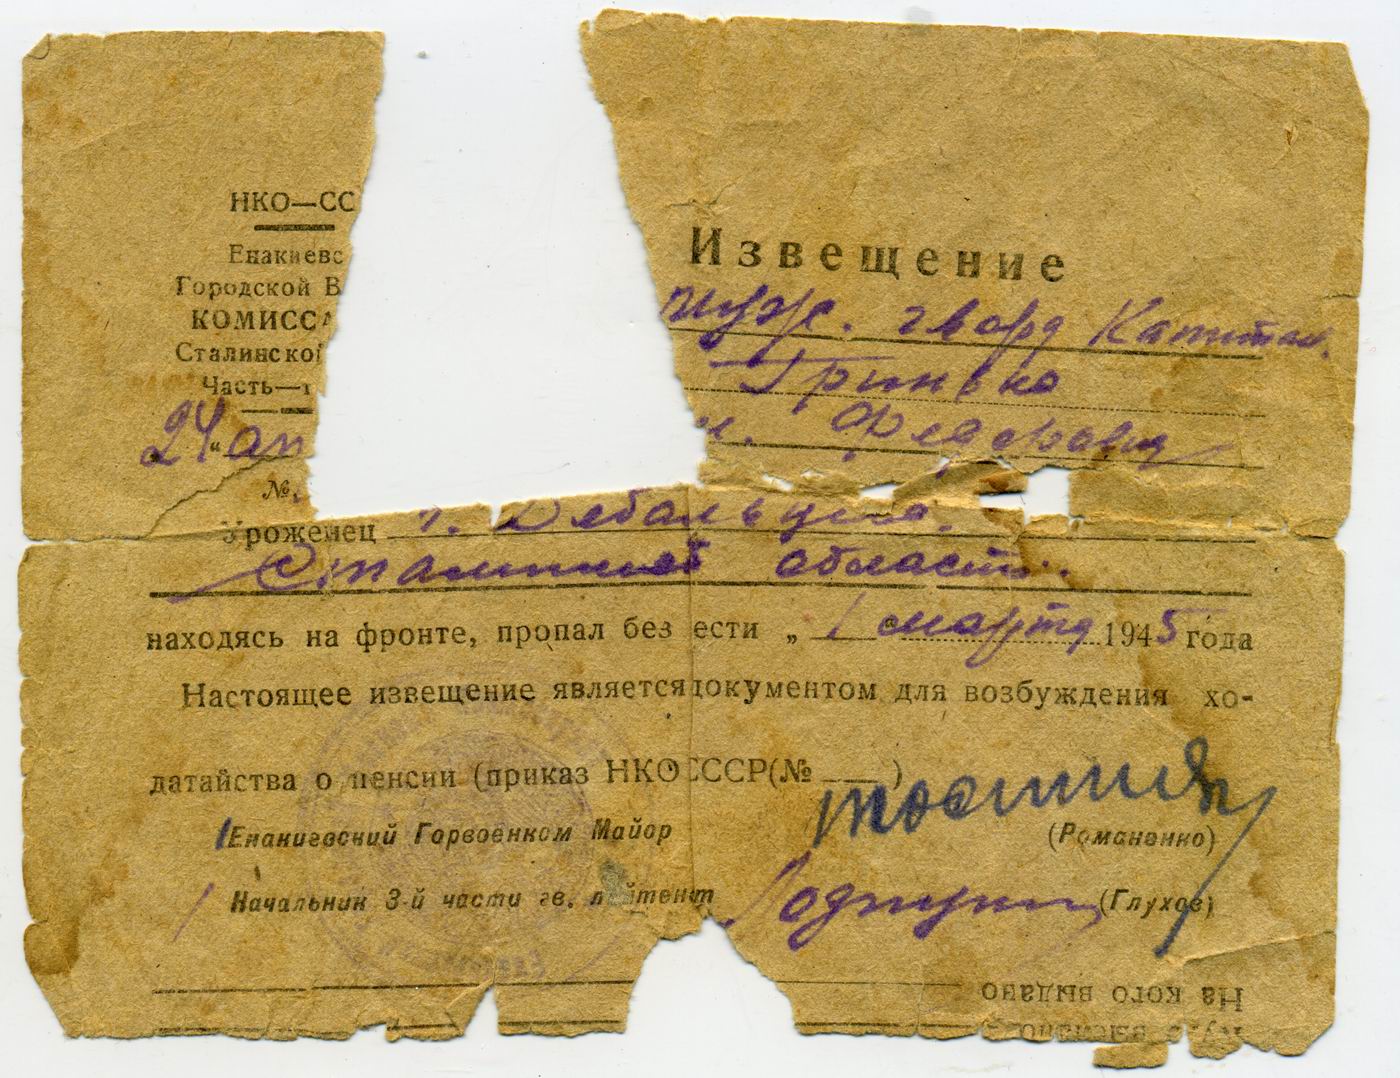 НКО—СС
Енакиевс
Городской В
КОМИССА
Сталинской
Часть—1
24 „ ап
№
Извещение
муж. гвард Капитан
Гринько
Федорович
Уроженец г. Дебальцево.
Сталинской области.
находясь на фронте, пропал без ести „ 1 марта 1945 года
Настоящее извещение является документом для возбуждения хо-
датайства о пенсии (приказ НКО СССР (№ )
Енакиевский Горвоенком Майор (Романенко)
Начальник 3-й части гв. лейтенант (Глухов)
На кого выдано